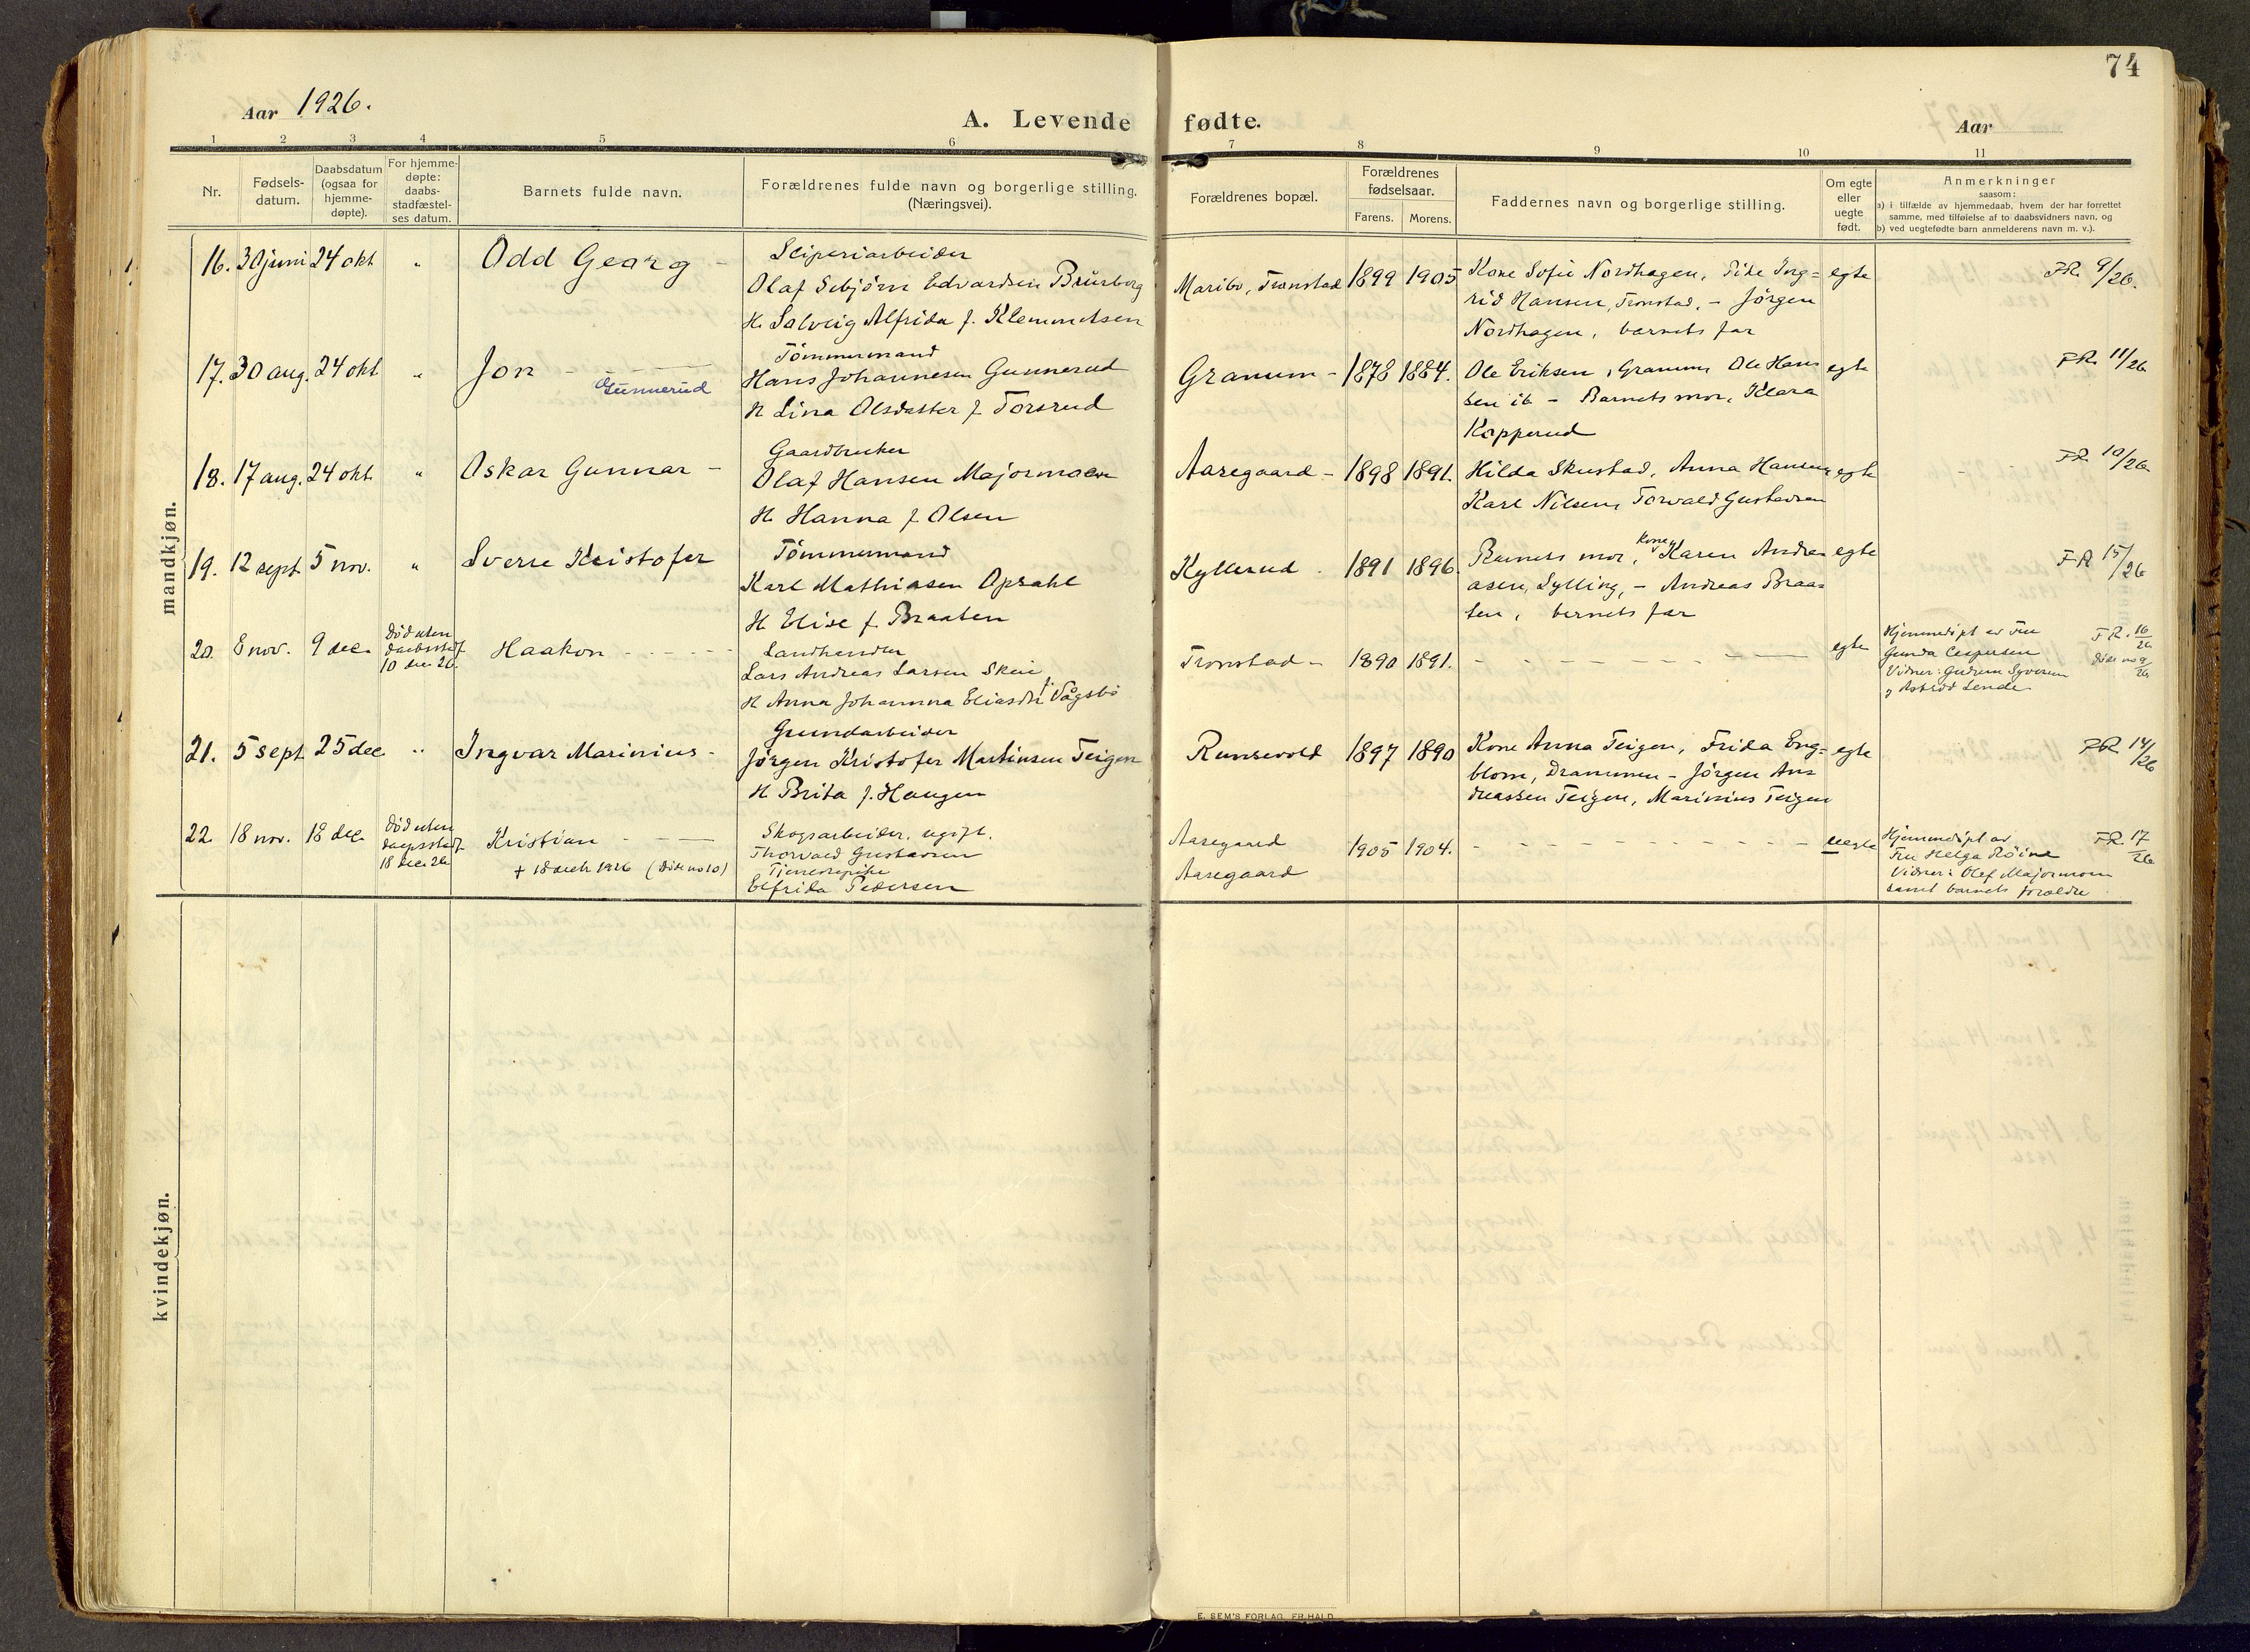 74
Aar 1926.
A. Levende fødte.
Aar
1 2 3 4 5 6 7 8 9 10 11
Nr.
Fødsels-
datum.
Daabsdatum
(ogsaa for
hjemme-
døpte).
For hjemme-
døpte:
daabs-
stadfæstel-
ses datum.
Barnets fulde navn.
Forældrenes fulde navn og borgerlige stilling.
(Næringsvei).
Forældrenes bopæl.
Forældrenes
fødselsaar.
Farens. Morens.
Faddernes navn og borgerlige stilling.
Om egte
eller
uegte
født.
Anmerkninger
saasom:
a) i tilfælde av hjemmedaab, hvem der har forrettet
samme, med tilføielse af to daabsvidners navn, og
b) ved uegtefødte barn anmelderens navn m. v.).
mandkjøn.
16. 30 juni 24 okt " Odd Georg -
Sliperiarbeider
Olaf Sebjörn Edvardsen Bruserg
H. Solveig Alfrida f. Klemmetsen
Maribo, Tronstad 1899 1905
Kone Sofie Nordhagen, Pike Ing=
rid Hansen, Tronstad, - Jörgen
Nordhagen, barnets far
egte
FR. 9/26.
17. 30 aug. 24 okt " Jon - Gunnerud
Tömmermand
Hans Johannesen Gunnerud
H Lina Olsdatter f Torsrud
Granum - 1878 1884.
Ole Eriksen, Granum, Ole Han
sen ib - Barnets mor, Klara
Kopperud
egte
FR 11/26
18. 17 aug. 24 okt. " Oskar Gunnar -
Gaardbruker
Olaf Hansen Majormoen
H. Hanna f Olsen
Aaregaard - 1898 1891.
Hilda Skustad, Anna Hansen
Karl Nilsen, Torvald Gustavsen
egte
FR 10/26
19. 12 sept 5 nov. " Sverre Kristofer
Tömmermand
Karl Mathiasen Opsahl
H Elise f. Braaten
Kyllerud 1891 1896.
Barnets mor, Kone Karen Andre
asen, Sylling, - Andreas Braa=
ten, barnets far
egte
FR 15/26
20. 8 nov. 9 dec.
Död uten
daabsstadf.
10 dec 26.
Haakon - - - -
Landhandler
Lars Andreas Larsen Skeie
H Anna Johanna Eliasdtr f. Vågsbö
Tronstad - 1890 1891. - - - - -
egte
Hjemmedöpt av Fru
Gunda Caspersen
Vidner: Gudrun Syversen
og Astrid Lende
FR. 16/26
Döde no 9/26
21. 5 sept 25 dec " Ingvar Marinius -
Grundarbeider
Jörgen Kristofer Martinsen Teigen
H Brita f. Haugen
Runsevold 1897 1890
Kone Anna Teigen, Frida Eng=
blom, Drammen - Jörgen An=
dreassen Teigen, Marinius Teigen
egte
FR 14/26
22. 18 nov. 18 dec.
Död uten
daapsstadf.
18 dec. 26
Kristian - - -
+ 18 dech 1926 (Döde no 10)
Skogsarbeider, ugift.
Thorvald Gustavsen
Tjenestepike
Elfrida Pedersen
Aaregaard
Aaregaard
1905 1904. - - - - -
uegte
Hjemmedöpt av
Fru Helga Röine
Vidner: Olaf Majormoen
samt barnets forældre
FR. 17/26
kvindekjøn.
E. SEM'S FORLAG, FR.HALD